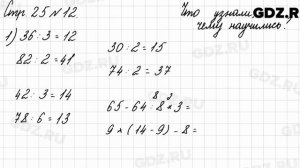 Стр. 25 № 12.
Что узнали,
чему научились?
GDZ.RU
1) 36 : 3 = 12
82 : 2 = 41
42 : 3 = 14
78 : 6 = 13
30 : 2 = 15
74 : 2 = 37
8 3
65 - 64 : 8 * 3 =
9 * (14 - 9) - 8 =